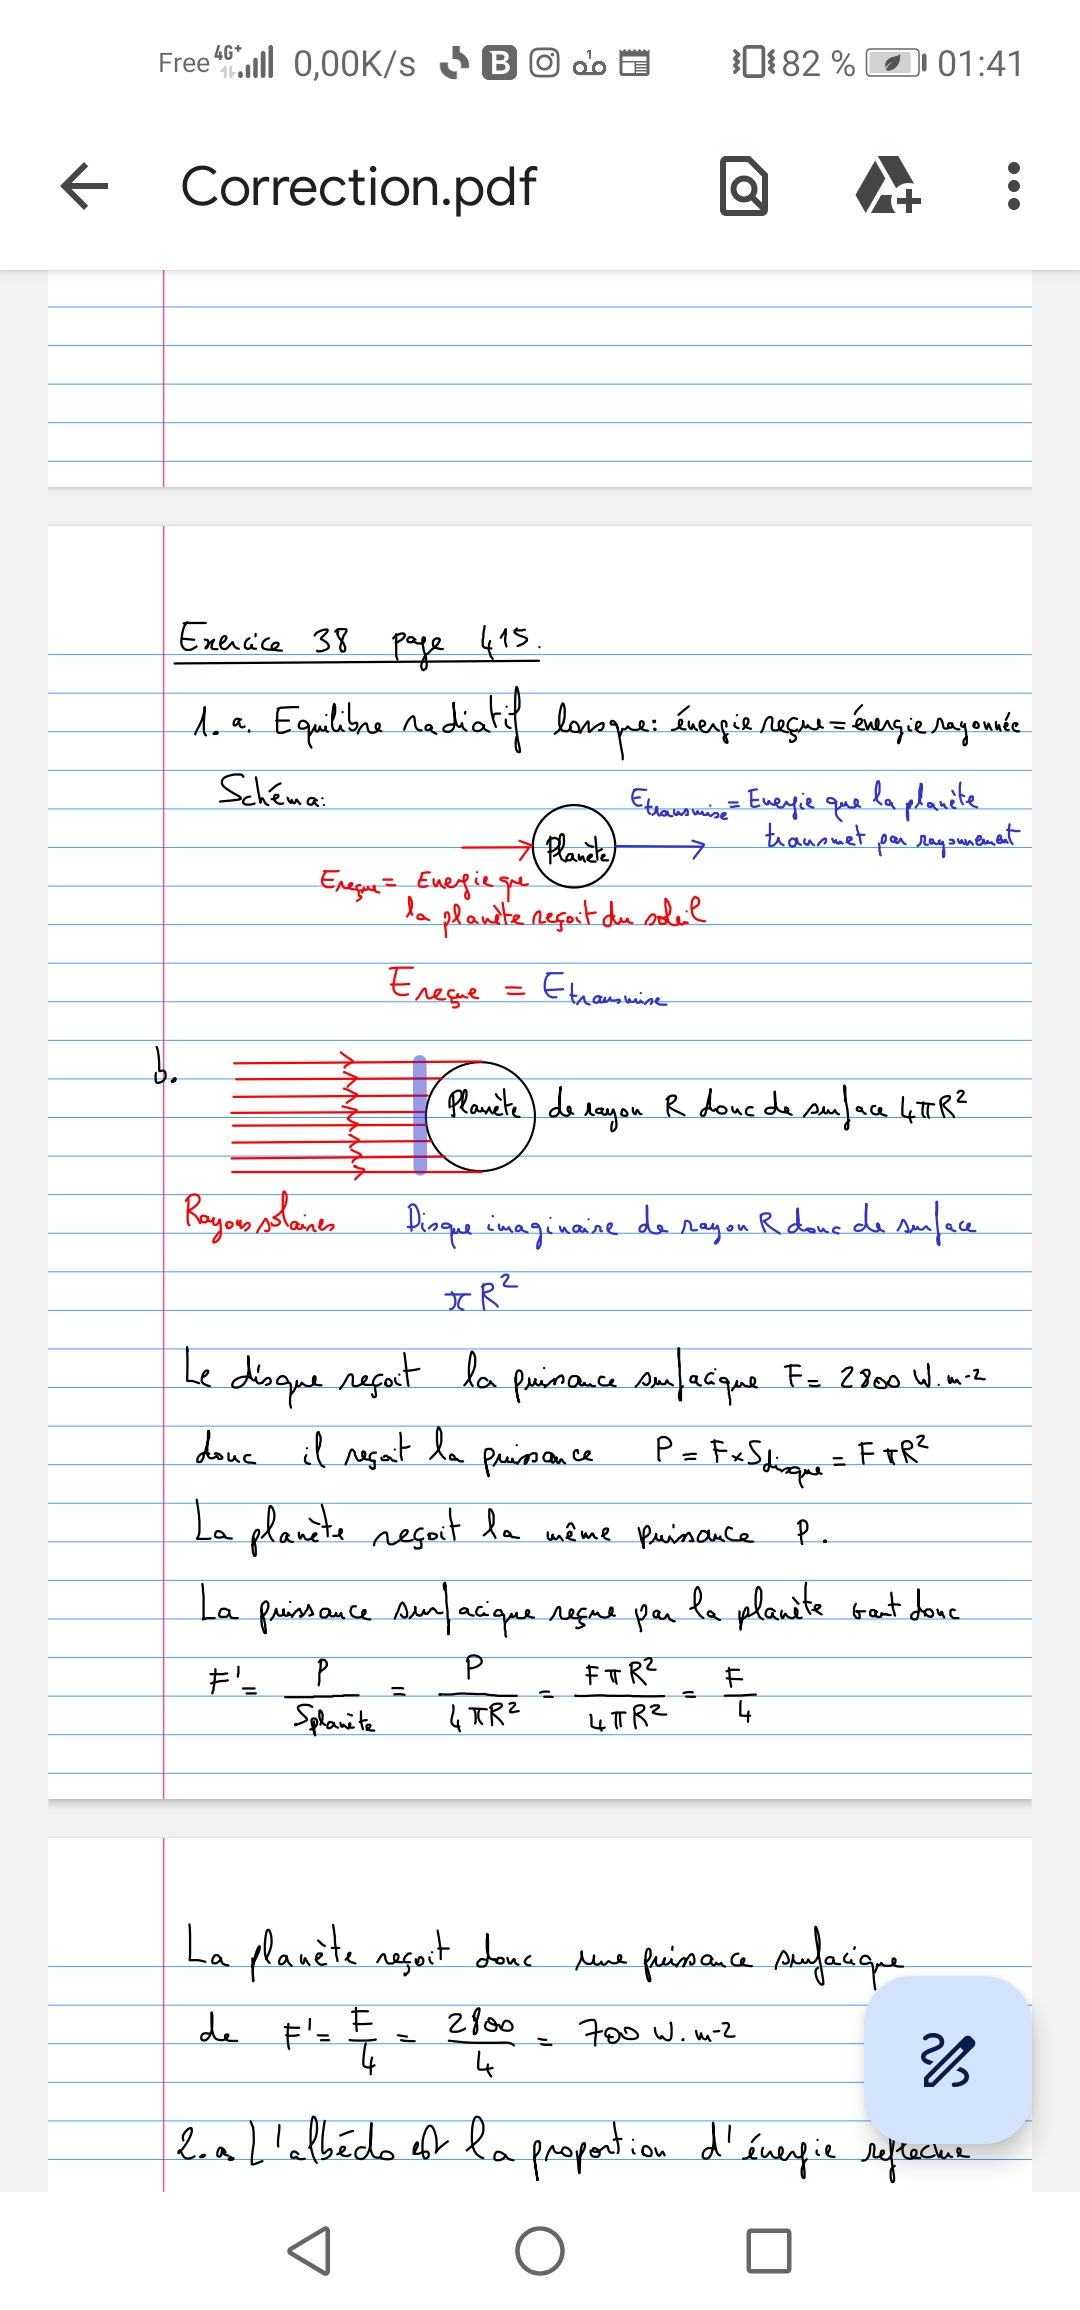 Free 4G+ 0,00K/s B 82 % 01:41
Correction.pdf
Exercice 38 page 415.
1. a. Equilibre radiatif lorsque: énergie reçue = énergie rayonnée
Schéma:
Etransmise = Energie que la planète
transmet par rayonnement
Planète
Ereçue = Energie que
la planète reçoit du soleil
Ereçue = Etransmise
b.
Planète de rayon R donc de surface 4πR²
Rayons solaires
Disque imaginaire de rayon R donc de surface
πR²
Le disque reçoit la puissance surfacique F = 2800 W.m-2
donc il reçoit la puissance P = F×Sdisque = FπR²
La planète reçoit la même puissance P.
La puissance surfacique reçue par la planète vaut donc
F' = P/Splanète = P/4πR² = FπR²/4πR² = F/4
La planète reçoit donc une puissance surfacique
de F' = F/4 = 2800/4 = 700 W.m-2
2. a. L'albédo est la proportion d'énergie réfléchie